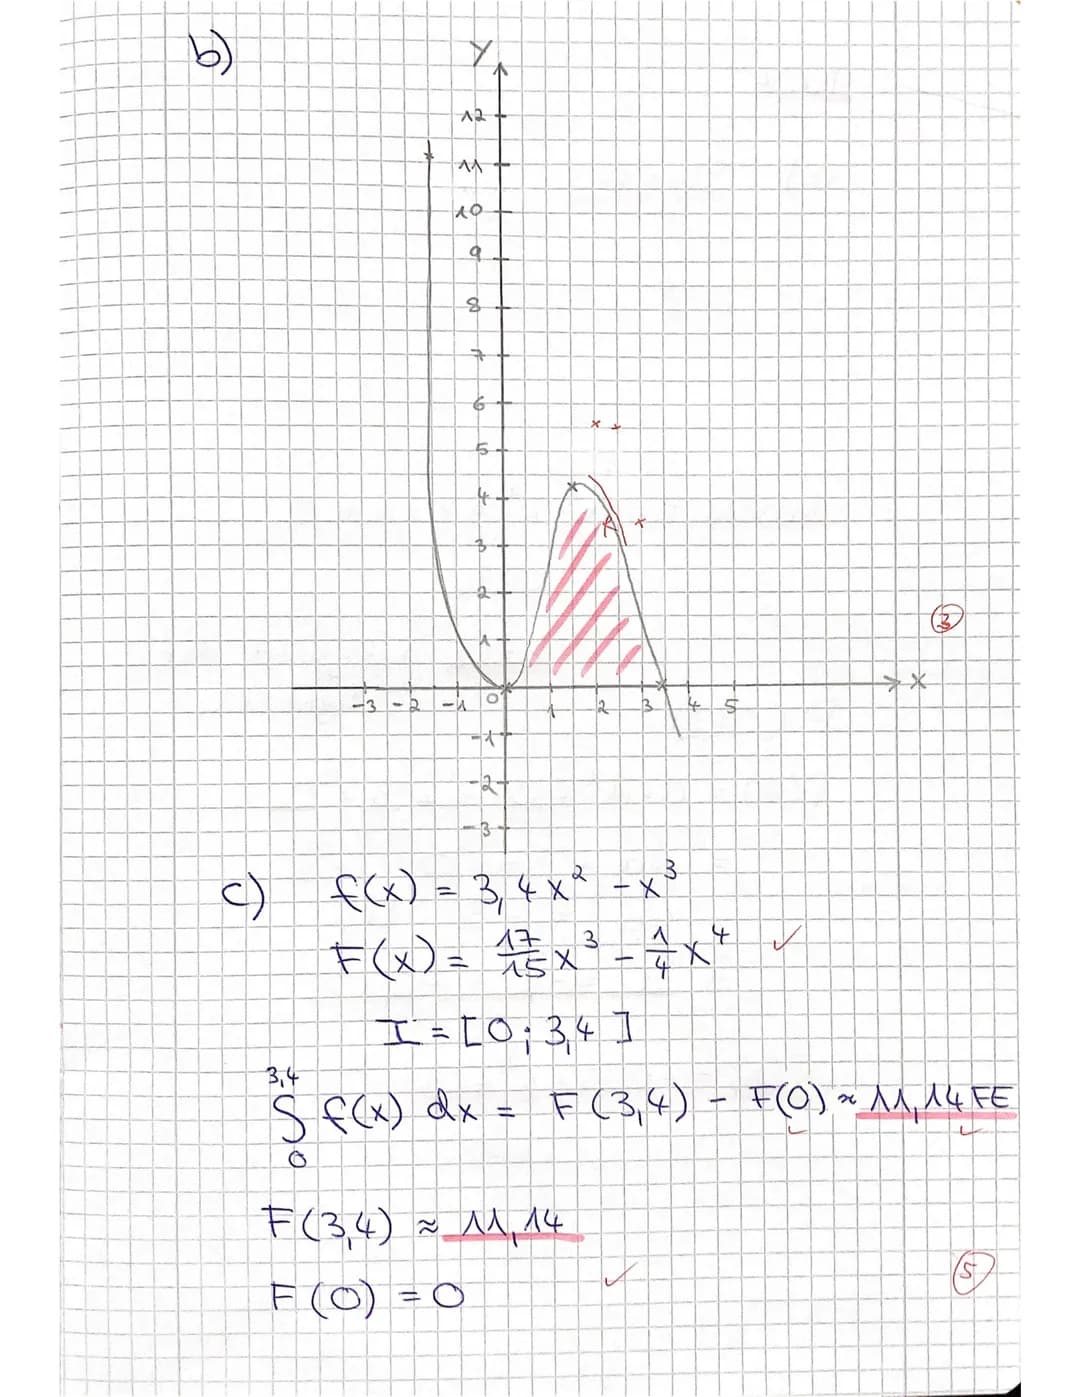 b)
y
12
11
10
9
8
7
6
5
4
3
2
1
0
-3 -2 -1 1 2 3 4 5 x
-1
-2
-3
3
c) f(x) = 3,4x² - x³
F(x) = 17/15 x³ - 1/4 x⁴ ✓
I = [0; 3,4]
3,4
∫ f(x) dx = F(3,4) - F(0) ≈ 11,14 FE
0
F(3,4) ≈ 11,14
F(0) = 0 ✓
5